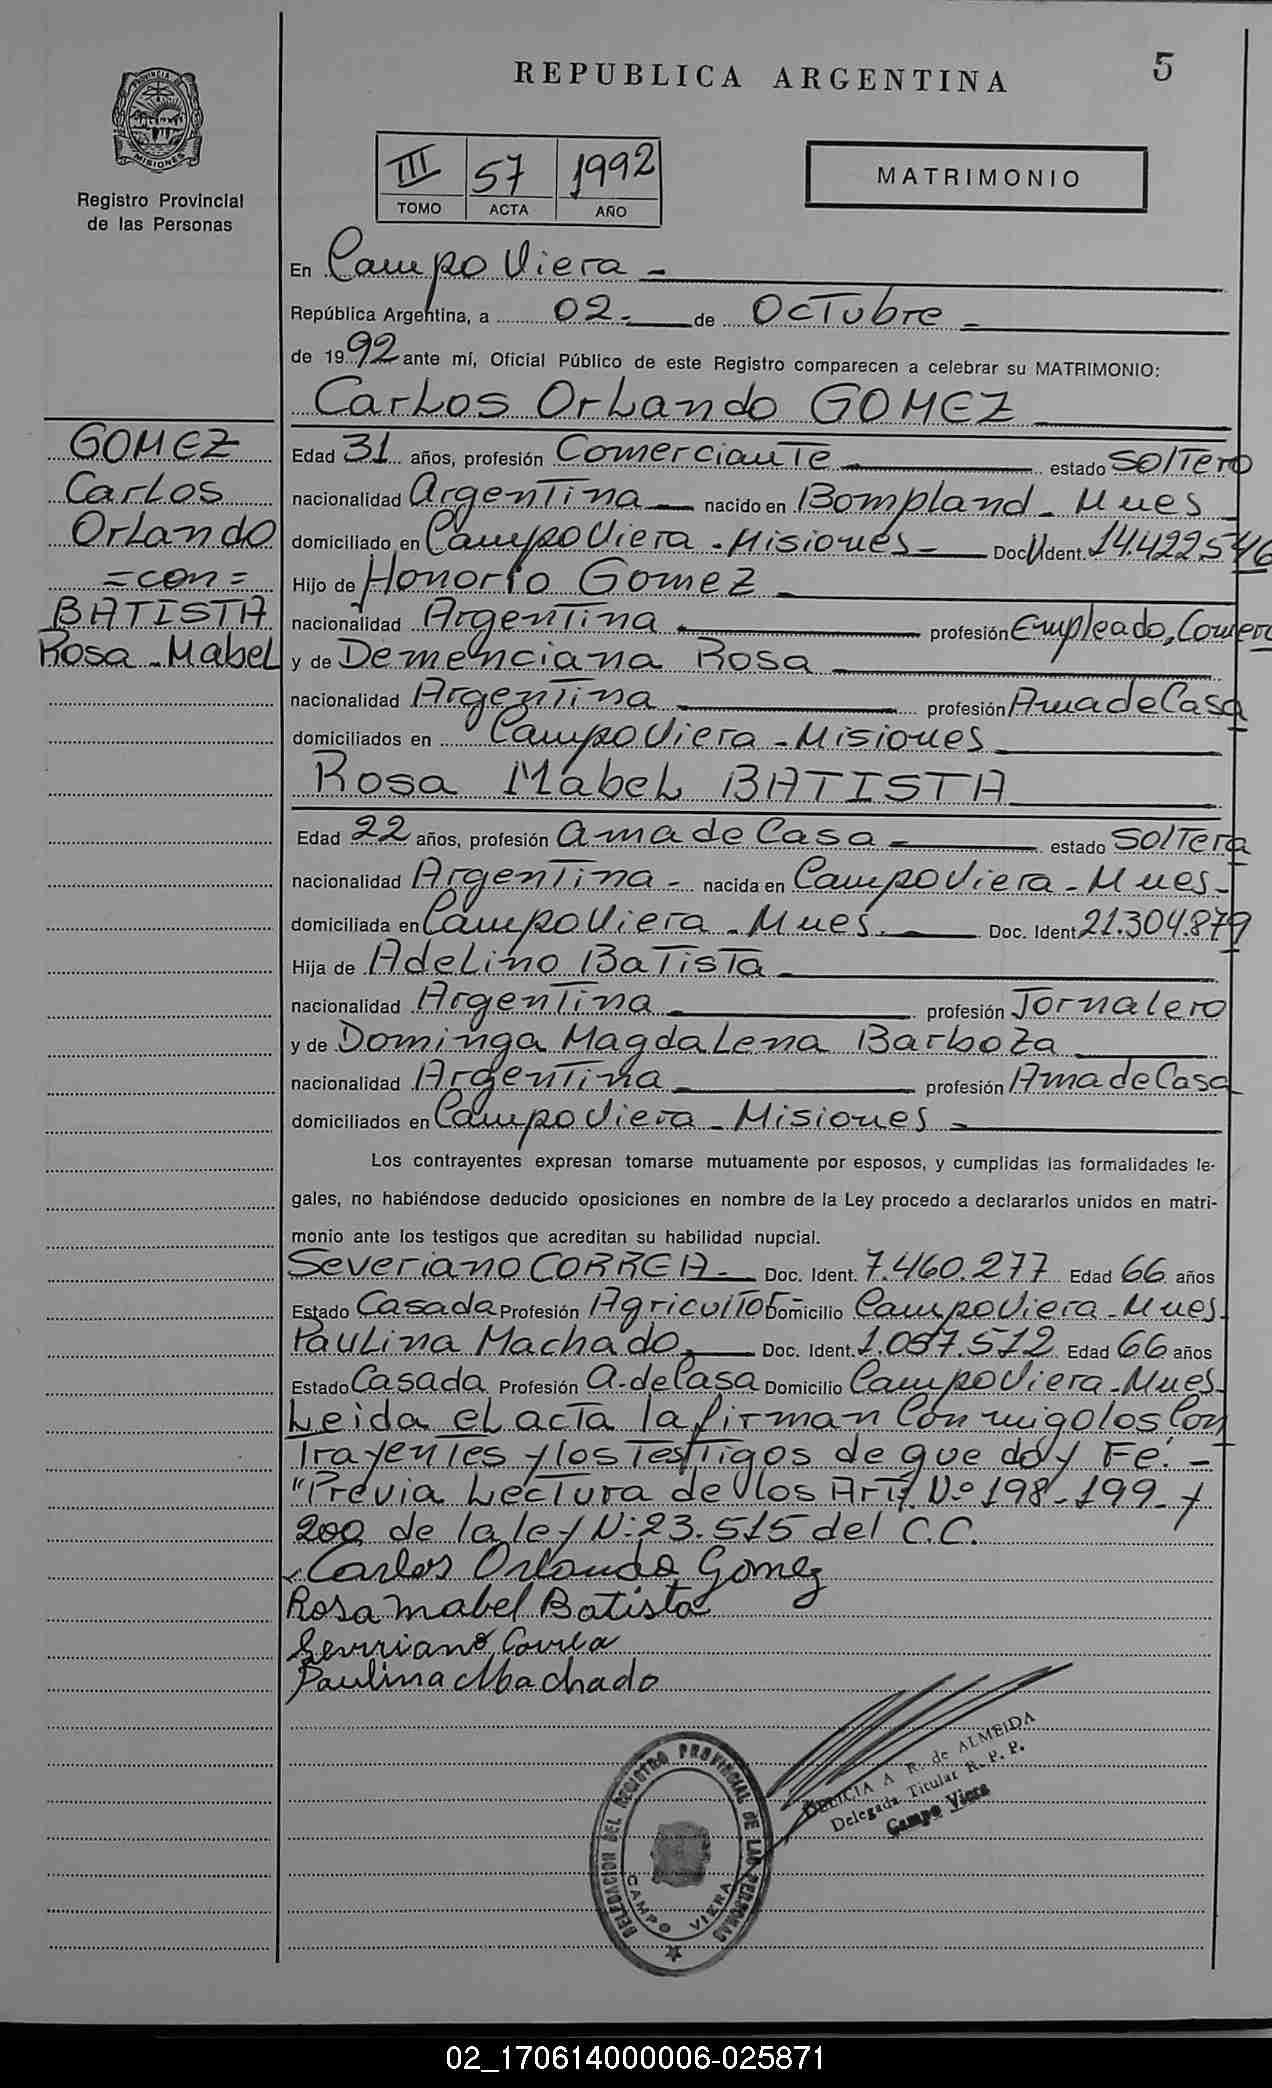 REPUBLICA ARGENTINA
5
PROVINCIA DE
MISIONES
Registro Provincial
de las Personas
III 57 1992
TOMO ACTA AÑO
MATRIMONIO
En Campo Viera -
República Argentina, a 02.- de Octubre -
de 1992 ante mí, Oficial Público de este Registro comparecen a celebrar su MATRIMONIO:
Carlos Orlando GOMEZ
GOMEZ
Carlos
Orlando
=con=
BATISTA
Rosa-Mabel
Edad 31 años, profesión Comerciante estado Soltero
nacionalidad Argentina nacido en Bompland - Mnes
domiciliado en Campo Viera - Misiones - Doc. Ident. 14.422.546
Hijo de Honorio Gomez
nacionalidad Argentina profesión Empleado, Comerc
y de Demenciana Rosa
nacionalidad Argentina profesión Ama de Casa
domiciliados en Campo Viera - Misiones
Rosa Mabel BATISTA
Edad 22 años, profesión ama de Casa estado Soltera
nacionalidad Argentina - nacida en Campo Viera - Mnes -
domiciliada en Campo Viera - Mnes. Doc. Ident 21.304.879
Hija de Adelino Batista
nacionalidad Argentina profesión Jornalero
y de Dominga Magdalena Barboza
nacionalidad Argentina profesión Ama de Casa
domiciliados en Campo Viera - Misiones -
Los contrayentes expresan tomarse mutuamente por esposos, y cumplidas las formalidades le-
gales, no habiéndose deducido oposiciones en nombre de la Ley procedo a declararlos unidos en matri-
monio ante los testigos que acreditan su habilidad nupcial.
Severiano CORREA - Doc. Ident. 7.460.277 Edad 66 años
Estado Casada Profesión Agricultor Domicilio Campo Viera - Mnes.
Paulina Machado Doc. Ident. 1.057.512 Edad 66 años
Estado Casada Profesión A. de Casa Domicilio Campo Viera - Mnes.
Leida el acta la firman Conmigo los Con
trayentes y los Testigos de que doy Fé. -
"Previa Lectura de los Art. Nº 198-199- y
200 de la ley N: 23.515 del C.C.
Carlos Orlando Gomez
Rosa Mabel Batista
Severiano Correa
Paulina Machado
DELICIA A R. de ALMEIDA
Delegada Titular R. P. P.
Campo Viera
DELEGACION DEL REGISTRO PROVINCIAL DE LAS PERSONAS
CAMPO VIERA
02_170614000006-025871